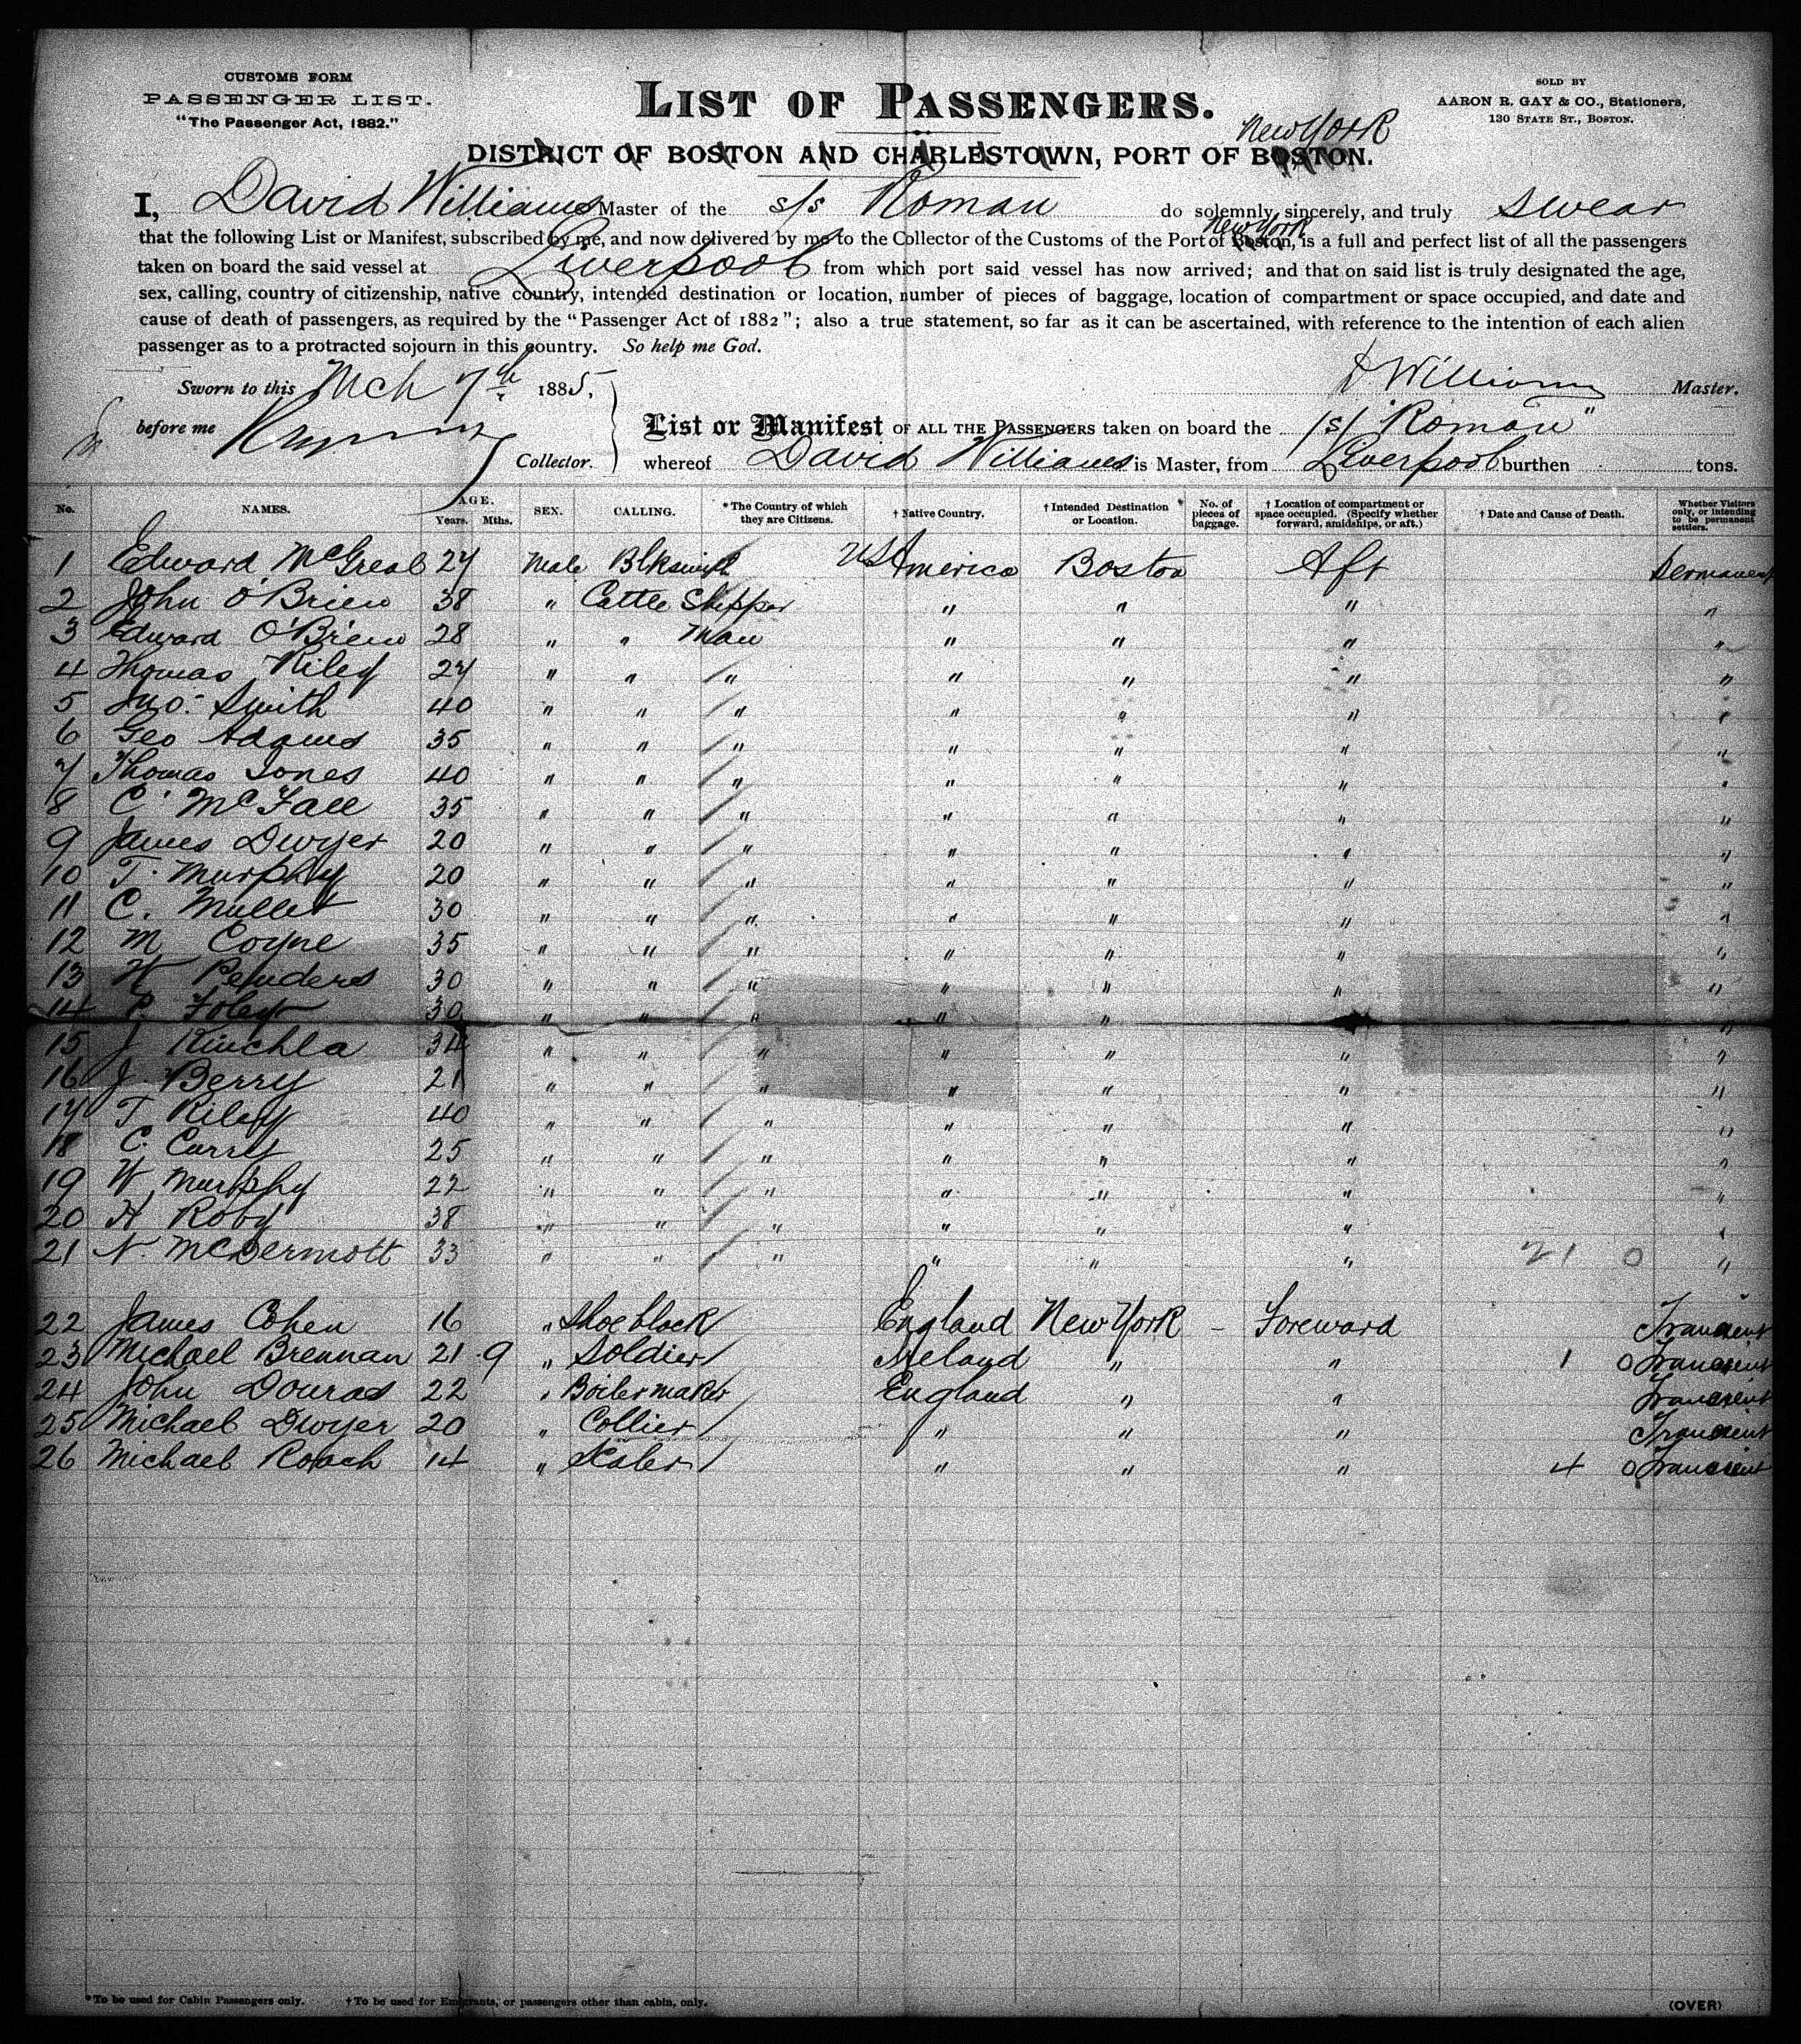 CUSTOMS FORM
PASSENGER LIST.
"The Passenger Act, 1882."
LIST OF PASSENGERS.
SOLD BY
AARON R. GAY & CO., Stationers,
130 STATE ST., BOSTON.
New York
DISTRICT OF BOSTON AND CHARLESTOWN, PORT OF BOSTON.
I, David Williams Master of the s/s Roman do solemnly, sincerely, and truly swear
New York
that the following List or Manifest, subscribed by me, and now delivered by me to the Collector of the Customs of the Port of Boston, is a full and perfect list of all the passengers
taken on board the said vessel at Liverpool from which port said vessel has now arrived; and that on said list is truly designated the age,
sex, calling, country of citizenship, native country, intended destination or location, number of pieces of baggage, location of compartment or space occupied, and date and
cause of death of passengers, as required by the "Passenger Act of 1882"; also a true statement, so far as it can be ascertained, with reference to the intention of each alien
passenger as to a protracted sojourn in this country. So help me God.
Sworn to this Mch 7th 1885,
D. Williams Master.
before me
Collector.
List or Manifest OF ALL THE PASSENGERS taken on board the /s/ "Roman"
whereof David Williams is Master, from Liverpool burthen tons.
No. NAMES. AGE. Years. Mths. SEX. CALLING. *The Country of which they are Citizens. †Native Country. †Intended Destination or Location. No. of pieces of baggage. †Location of compartment or space occupied. (Specify whether forward, amidships, or aft.) †Date and Cause of Death. Whether Visitors only, or intending to be permanent settlers.
1 Edward McGreal 27 Male Blksmith US America Boston Aft Permanent
2 John O'Brien 38 " Cattle Shipper " " " "
3 Edward O'Brien 28 " " Man " " " "
4 Thomas Riley 27 " " " " " " "
5 Jno. Smith 40 " " " " " " "
6 Geo Adams 35 " " " " " " "
7 Thomas Jones 40 " " " " " " "
8 C. McFall 35 " " " " " " "
9 James Dwyer 20 " " " " " " "
10 T. Murphy 20 " " " " " " "
11 C. Mullet 30 " " " " " " "
12 M Coyne 35 " " " " " " "
13 W Penders 30 " " " " " " "
14 P. Foley 30 " " " " " " "
15 J Kinchla 34 " " " " " " "
16 J. Berry 21 " " " " " " "
17 T Riley 40 " " " " " " "
18 C. Curry 25 " " " " " " "
19 W Murphy 22 " " " " " " "
20 H Roby 38 " " " " " " "
21 N. McDermott 33 " " " " " " 21 0 "
22 James Cohen 16 " Shoeblack England New York - Foreward Transient
23 Michael Brennan 21 9 " Soldier Ireland " " 1 0 Transient
24 John Douras 22 " Boilermaker England " " Transient
25 Michael Dwyer 20 " Collier " " " Transient
26 Michael Roach 14 " " " " 4 0 Transient
*To be used for Cabin Passengers only. †To be used for Emigrants, or passengers other than cabin, only.
(OVER)